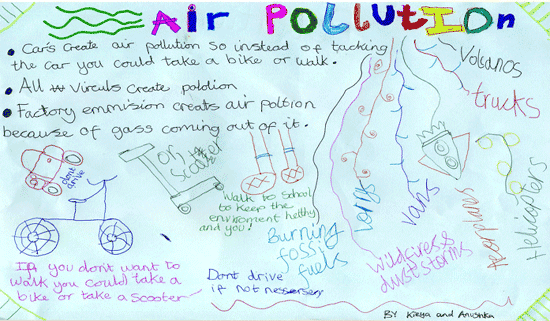 Air Pollution
• Car's create air pollution so instead of taching
the car you could take a bike or walk.
• All virculs create polotion
• Factory emmision creats air poltion
because of gass coming out of it.
Volcanos
trucks
dont drive
Or, scooter
walk to school
to keep the
enviroment helthy
and you!
Burning
fossil
fuels
lorrys
vans
wildfires &
dust storms
aeorplanes
Helicopters
If you dont want to
walk you could take a
bike or take a scooter
Dont drive
if not nessersery
BY Kaeya and Anushka